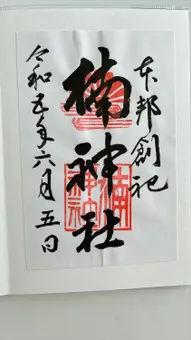 本邦創祀
楠神社
令和五年六月五日